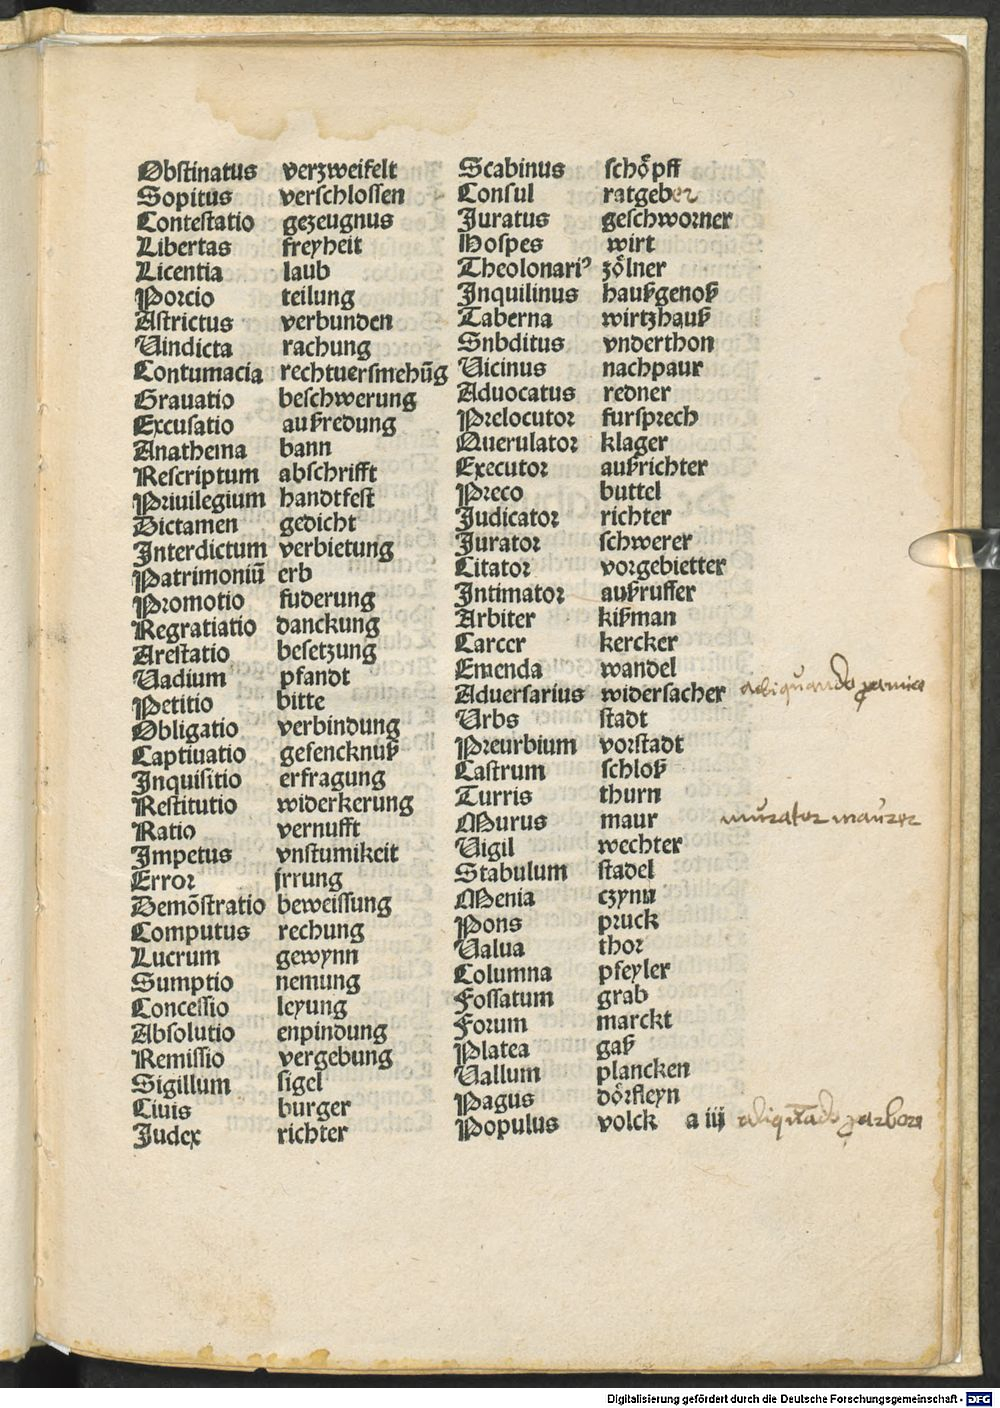 Obstinatus verzweifelt
Sopitus verschlossen
Contestatio gezeugnus
Libertas freyheit
Licentia laub
Porcio teilung
Astrictus verbunden
Uindicta rachung
Contumacia rechtuersmehūg
Grauatio beschwerung
Excusatio außredung
Anathema bann
Rescriptum abschrifft
Priuilegium handtfest
Dictamen gedicht
Interdictum verbietung
Patrimoniū erb
Promotio fuderung
Regratiatio danckung
Arestatio besetzung
Uadium pfandt
Petitio bitte
Obligatio verbindung
Captiuatio gefencknuß
Inquisitio erfragung
Restitutio widerkerung
Ratio vernufft
Impetus vnstumikeit
Error jrrung
Demōstratio beweissung
Computus rechung
Lucrum gewynn
Sumptio nemung
Concessio leyung
Absolutio enpindung
Remissio vergebung
Sigillum sigel
Ciuis burger
Judex richter
Scabinus schöpff
Consul ratgeber
Juratus geschworner
Hospes wirt
Theolonariꝰ zölner
Inquilinus haußgenoß
Taberna wirtzhauß
Snbditus vnderthon
Uicinus nachpaur
Aduocatus redner
Prelocutor fursprech
Querulator klager
Executor außrichter
Preco buttel
Judicator richter
Jurator schwerer
Citator vorgebietter
Intimator außruffer
Arbiter kißman
Carcer kercker
Emenda wandel
Aduersarius widersacher aliquando
Urbs stadt
Preurbium vorstadt
Castrum schloß
Turris thurn
Murus maur murator maurer
Uigil wechter
Stabulum stadel
Menia czynn
Pons pruck
Ualua thor
Columna pfeyler
Fossatum grab
Forum marckt
Platea gaß
Uallum plancken
Pagus dörfleyn
Populus volck a iij aliqnādo arbore
Digitalisierung gefördert durch die Deutsche Forschungsgemeinschaft - DFG